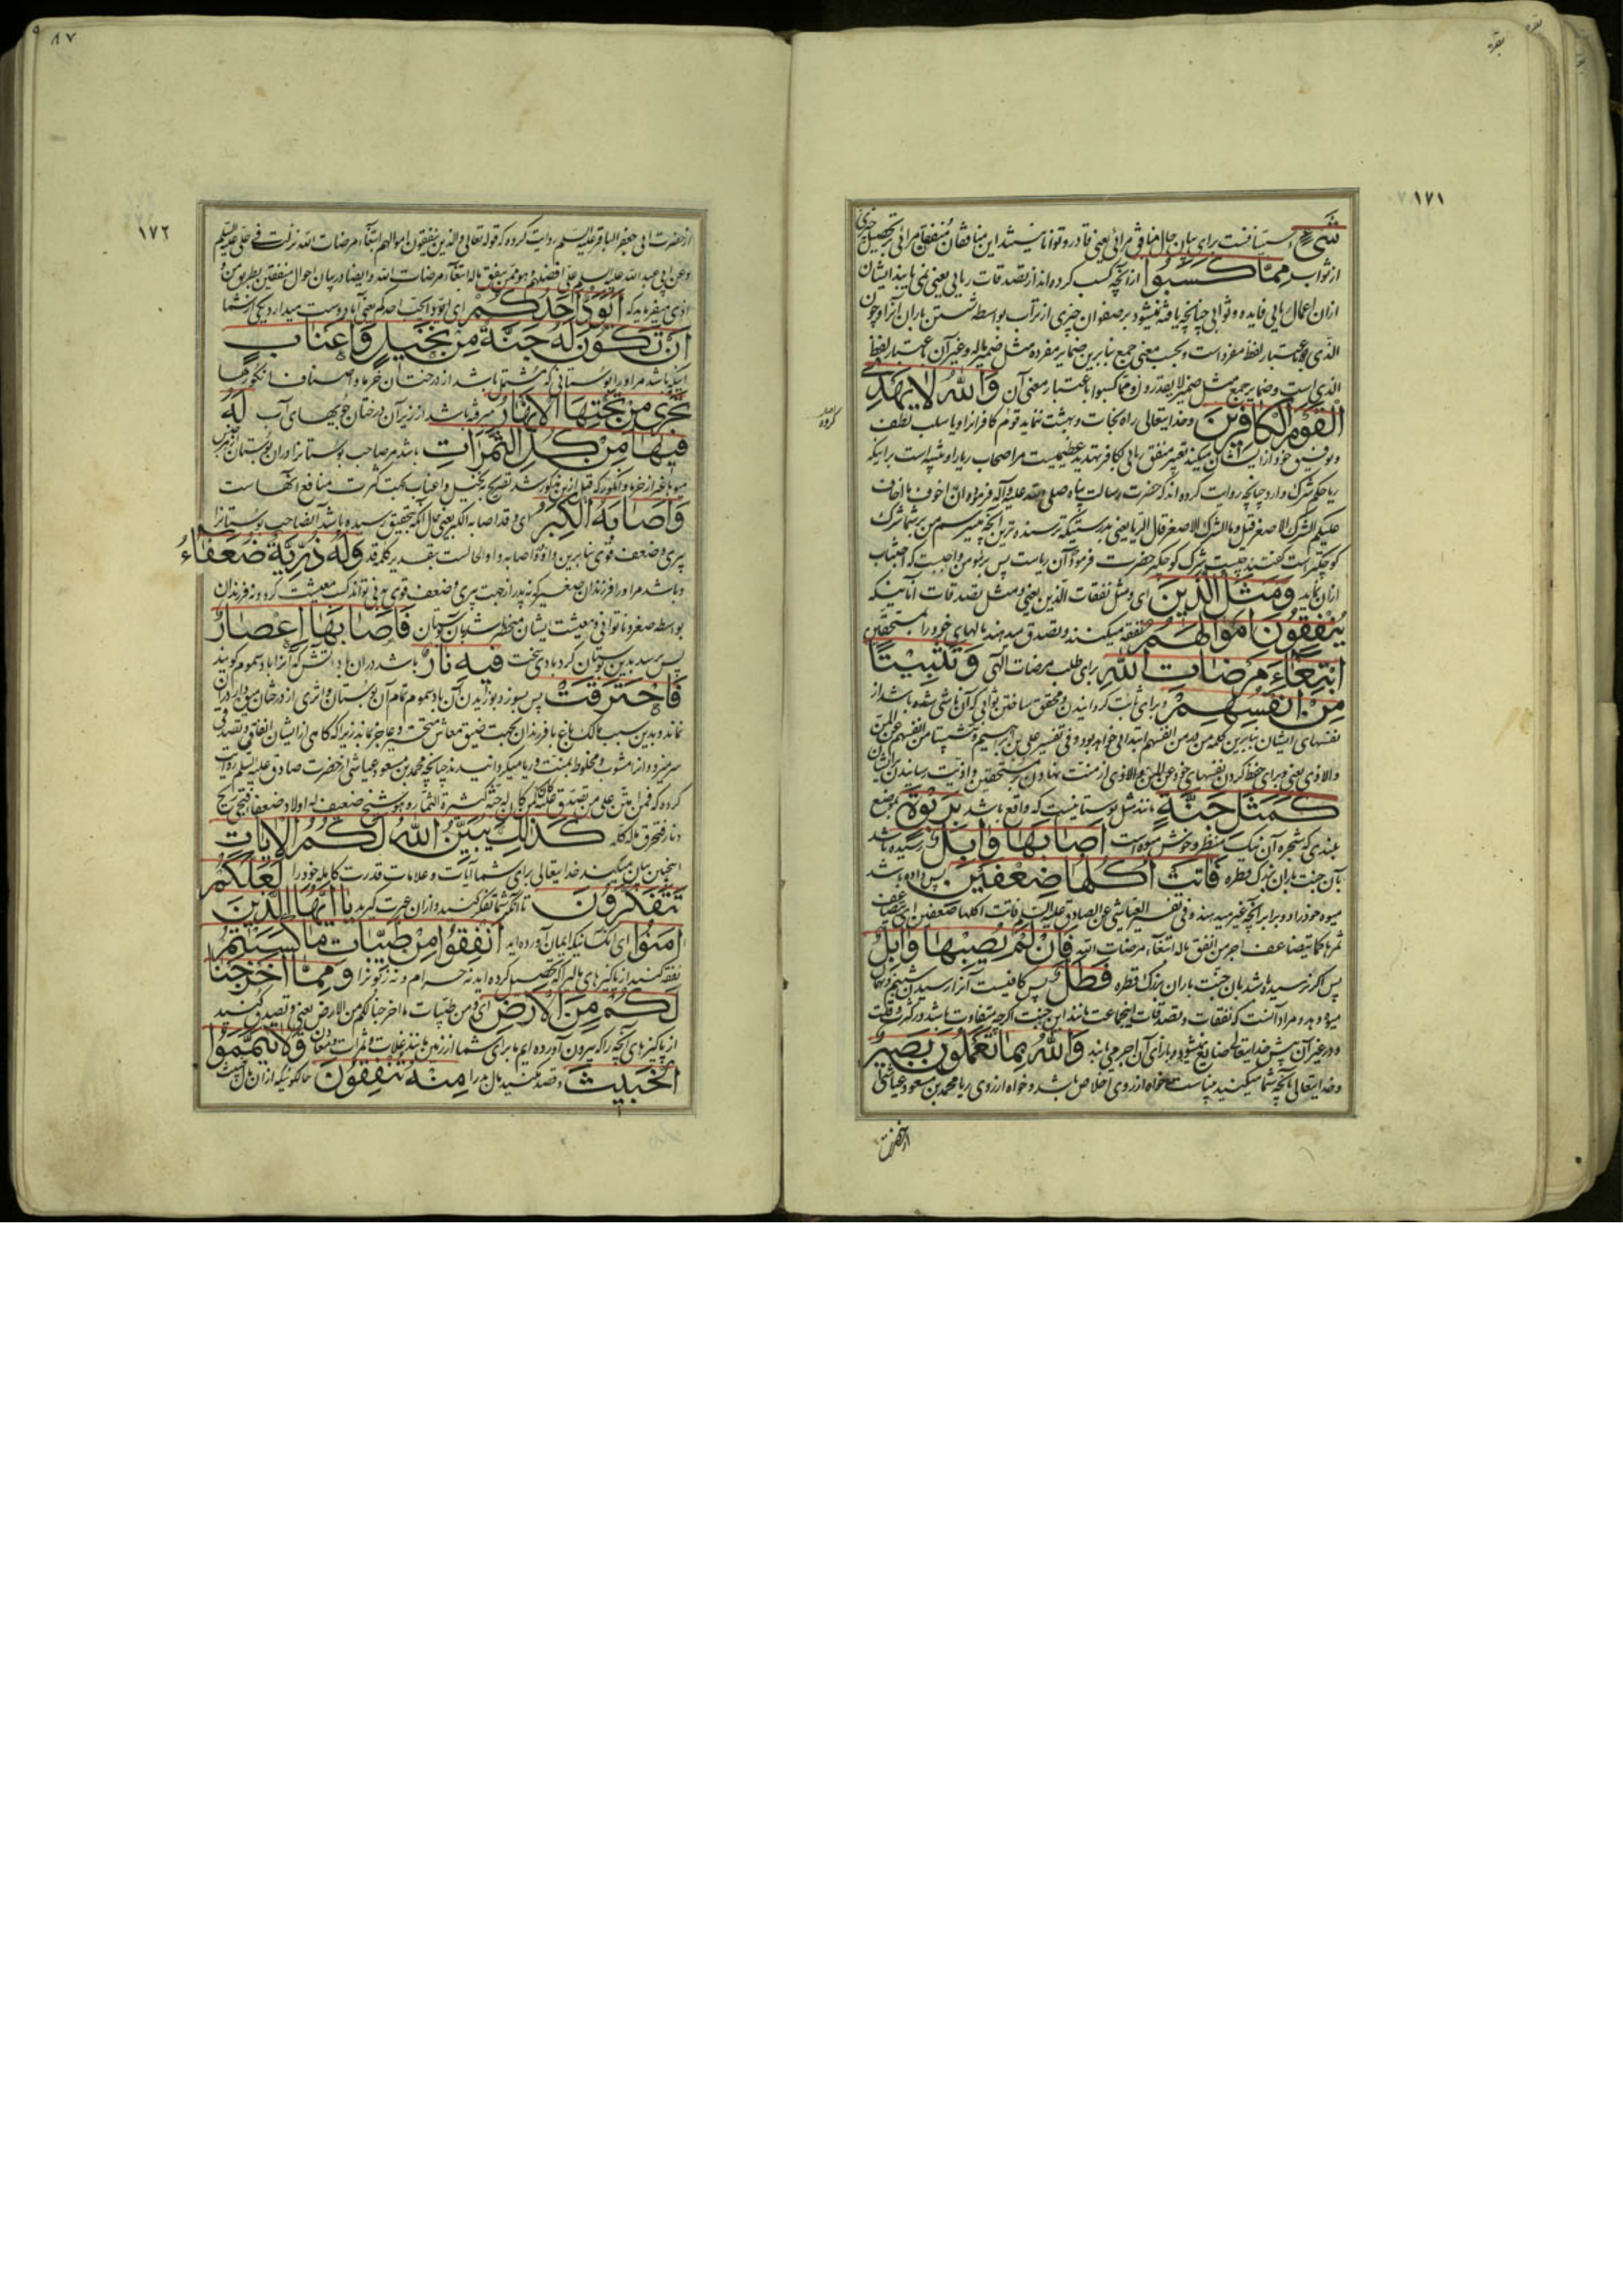 بقره
بقره
۱۷۱
شَیْءٍ استینافست برای بیان حال منافق مرائی یعنی قادر و توانا نیستند این منافقان و منفقان مرائی بر تحصیل چیزی
از ثواب مِمَّا كَسَبُوا از آنچه کسب کرده‌اند از تصدقات ریائی یعنی نمی یابند ایشان
ازان اعمال ریائی فایده و ثوابی چنانچه یافته نمیشود بر صفوان چیزی از تراب بواسطه شستن باران آنرا و چون
الذی باعتبار لفظ مفرد است و بحسب معنی جمع بنابرین ضمایر مفرده مثل ضمیر ماله و غیر آن باعتبار لفظ
الذی است و ضمایر جمع مثل ضمیر لا یقدرون و مما کسبوا باعتبار معنی آن وَاللهُ لَا يَهْدِي
الْقَوْمَ الْكَافِرِينَ و خدایتعالی راه نجات و بهشت ننماید قوم کافرانرا و یا سلب لطف
و توفیق خود از ایشان میکند تعبیر منفق ریائی بکافر تهدید عظیمیست مر اصحاب ریا را و تنبیه است بر اینکه
ریا حکم شرک دارد چنانچه روایت کرده‌اند که حضرت رسالت پناه صلی الله علیه و آله فرموده ان اخوف ما اخاف
علیکم الشرک الاصغر قیل و ما الشرک الاصغر قال الریا یعنی بدرستیکه ترسنده ترین آنچه میترسم من بر شما شرک
کوچکتر است گفتند چیست شرک کوچکتر حضرت فرمود آن ریاست پس بر مؤمن واجبست که اجتناب
ازان نماید وَمَثَلُ الَّذِينَ ای و مثل نفقات الذین یعنی و مثل تصدقات آنانیکه
يُنْفِقُونَ اَمْوَالَهُمُ نفقه میکنند و تصدق میدهند مالهای خود را بمستحقین
ابْتِغَاءَ مَرْضَاتِ اللهِ برای طلب مرضات الهی وَتَثْبِيتًا
مِنْ اَنْفُسِهِمْ و برای ثابت گردانیدن و محقق ساختن ثوابی که آن ناشی شده باشد از
نفسهای ایشان بنابرین کلمه من در من انفسهم ابتدائی خواهد بود و فی تفسیر علی بن ابراهیم و تثبیتا من انفسهم عن المن
والاذی یعنی و برای حفظ کردن نفسهای خود عن المن والاذی از منت نهادن بر مستحقین و اذیت رسانیدن بر ایشان
كَمَثَلِ جَنَّةٍ مانند مثل بوستانیست که واقع باشد بِرَبْوَةٍ بموضع
بلندی که شجره آن نیک منظر و خوش میوه است اَصَابَهَا وَابِلٌ رسیده باشد
بآن جنت باران بزرگ قطره فَاٰتَتْ اُكُلَهَا ضِعْفَيْنِ پس داده باشد
میوه خود را دو برابر آنچه غیر میدهند و فی تفسیر العیاشی عن الصادق علیه السلام فاتت اکلها ضعفین ای یتضاعف
ثمرها کما یتضاعف اجر من انفق ماله ابتغاء مرضات الله فَاِنْ لَمْ يُصِبْهَا وَابِلٌ
پس اگر نرسیده باشد بآن جنت باران بزرگ قطره فَطَلٌّ پس کافیست آنرا رسیدن شبنم و نم
میوه دهد و مراد آنست که نفقات و تصدقات اینجماعت مانند این جنت اگرچه متفاوت باشد در کثرت و قلت
و در غیر آن پیش خدایتعالی ضایع نمیشود و بازای آن اجر می یابند وَاللهُ بِمَا تَعْمَلُونَ بَصِيرٌ
و خدایتعالی بآنچه شما میکنید بیناست خواه از روی اخلاص باشد و خواه از روی ریا محمد بن مسعود عیاشی
از حضرت
۸۷
۱۷۲
از حضرت ابی جعفر الباقر علیه السلم روایت کرده که قوله تعالی والذین ینفقون اموالهم ابتغاء مرضات الله نزلت فی علی علیه السلم
و عن ابی عبد الله علیه السلم علی افضلهم و هو ممن ینفق ماله ابتغاء مرضات الله و ایضا در بیان احوال منفقین بطریق من و
اذی میفرماید که اَيَوَدُّ اَحَدُكُمْ ای ایود و یحب احدکم یعنی آیا دوست میدارد یکی از شما
اَنْ تَكُونَ لَهُ جَنَّةٌ مِنْ نَخِيلٍ وَاَعْنَابٍ
اینکه باشد مر او را بوستانی که مشتمل باشد از درختان خرما و اصناف انگورها
تَجْرِي مِنْ تَحْتِهَا الْاَنْهَارُ میرفته باشد از زیر آن درختان جویهای آب لَهُ
فِيهَا مِنْ كُلِّ الثَّمَرَاتِ باشد مر صاحب بوستانرا دران بوستان از هر
میوه غیر از خرما و انگور که قبل ازین مذکور شد تصریح بنخیل و اعناب بجهت کثرت منافع آنهاست
وَاَصَابَهُ الْكِبَرُ ای و قد اصابه الکبر یعنی حال آنکه بتحقیق رسیده باشد آنصاحب بوستانرا
پیری و ضعف قوی بنابرین واو و اصابه واو حالیست بتقدیر کلمه قد وَلَهُ ذُرِّيَّةٌ ضُعَفَاءُ
و باشد مر او را فرزندان صغیر که نه پدر از جهت پیری و ضعف قوی تواند کسب معیشت کرد و نه فرزندان
بواسطه صغر و ناتوانی و معیشت ایشان منحصر باشد بآن بوستان فَاَصَابَهَا اِعْصَارٌ
پس برسد بدین بوستان گردبادی سخت فِيهِ نَارٌ باشد دران باد آتش که آنرا باد سموم گویند
فَاحْتَرَقَتْ پس بسوزد بوزیدن آن باد سموم تمام آن بوستان و اثری از درختان میوه‌دار دران
نماند و بدین سبب مالک باغ با فرزندان بجهت ضیق معاش متحیر و عاجز بماند زیرا که گاهی از ایشان انفاق و تصدقی
سر میزد و انرا مشوب و مخلوط بمنت و ریا میگردانیدند چنانچه محمد بن مسعود عیاشی از حضرت صادق علیه السلم روایت
کرده که فمن امتن علی من تصدق علیه کمن کان له جنة کثیرة الثمار و هو شیخ ضعیف له اولاد ضعفا فتجیء ریح
و نار فتحرق ماله کله كَذٰلِكَ يُبَيِّنُ اللهُ لَكُمُ الْاٰيَاتِ
اینچنین بیان میکند خدایتعالی برای شما آیات و علامات قدرت کامله خود را لَعَلَّكُمْ
تَتَفَكَّرُونَ تا آنکه شما تفکر کنید و ازان عبرت گیرید يَا اَيُّهَا الَّذِينَ
اٰمَنُوا ای آنکسانیکه ایمان آورده‌اید اَنْفِقُوا مِنْ طَيِّبَاتِ مَا كَسَبْتُمْ
نفقه کنید از پاکیزهای مالیرا که تحصیل کرده‌اید نه حرام و نه زکوتزا وَمِمَّا اَخْرَجْنَا
لَكُمْ مِنَ الْاَرْضِ ای و من طیبات ما اخرجنا لکم من الارض یعنی و تصدق کنید
از پاکیزهای آنچه را که بیرون آورده‌ایم ما برای شما از زمین مانند غلات و ثمرات و معادن وَلَا تَيَمَّمُوا
الْخَبِيثَ و قصد مکنید مال بد را مِنْهُ تُنْفِقُونَ حالکونیکه ازان مال